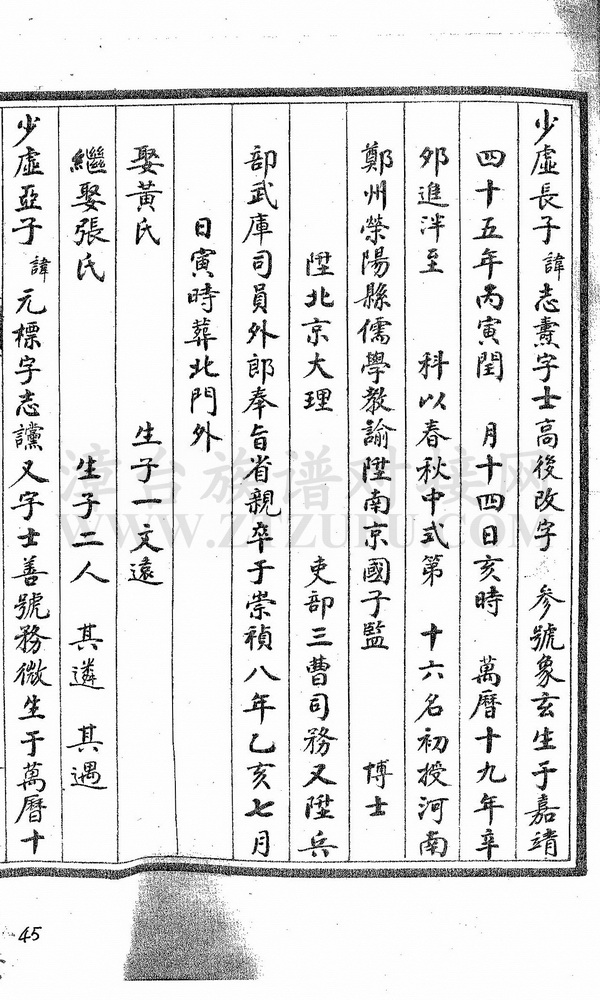 少虛長子 諱志燾字士高後改字 參號象玄生于嘉靖
四十五年丙寅閏 月十四日亥時 萬曆十九年辛
夘進泮至 科以春秋中式第 十六名初授河南
鄭州滎陽縣儒學教諭陞南京國子監 博士
陞北京大理 吏部三曹司務又陞兵
部武庫司員外郎奉旨省親卒于崇禎八年乙亥七月
日寅時葬北門外
娶黃氏 生子一文遠
繼娶張氏 生子二人 其遴 其遇
少虛亞子 諱元標字志讜又字士善號務微生于萬曆十
45
漳台族谱对接网
WWW.ZTZUPU.COM